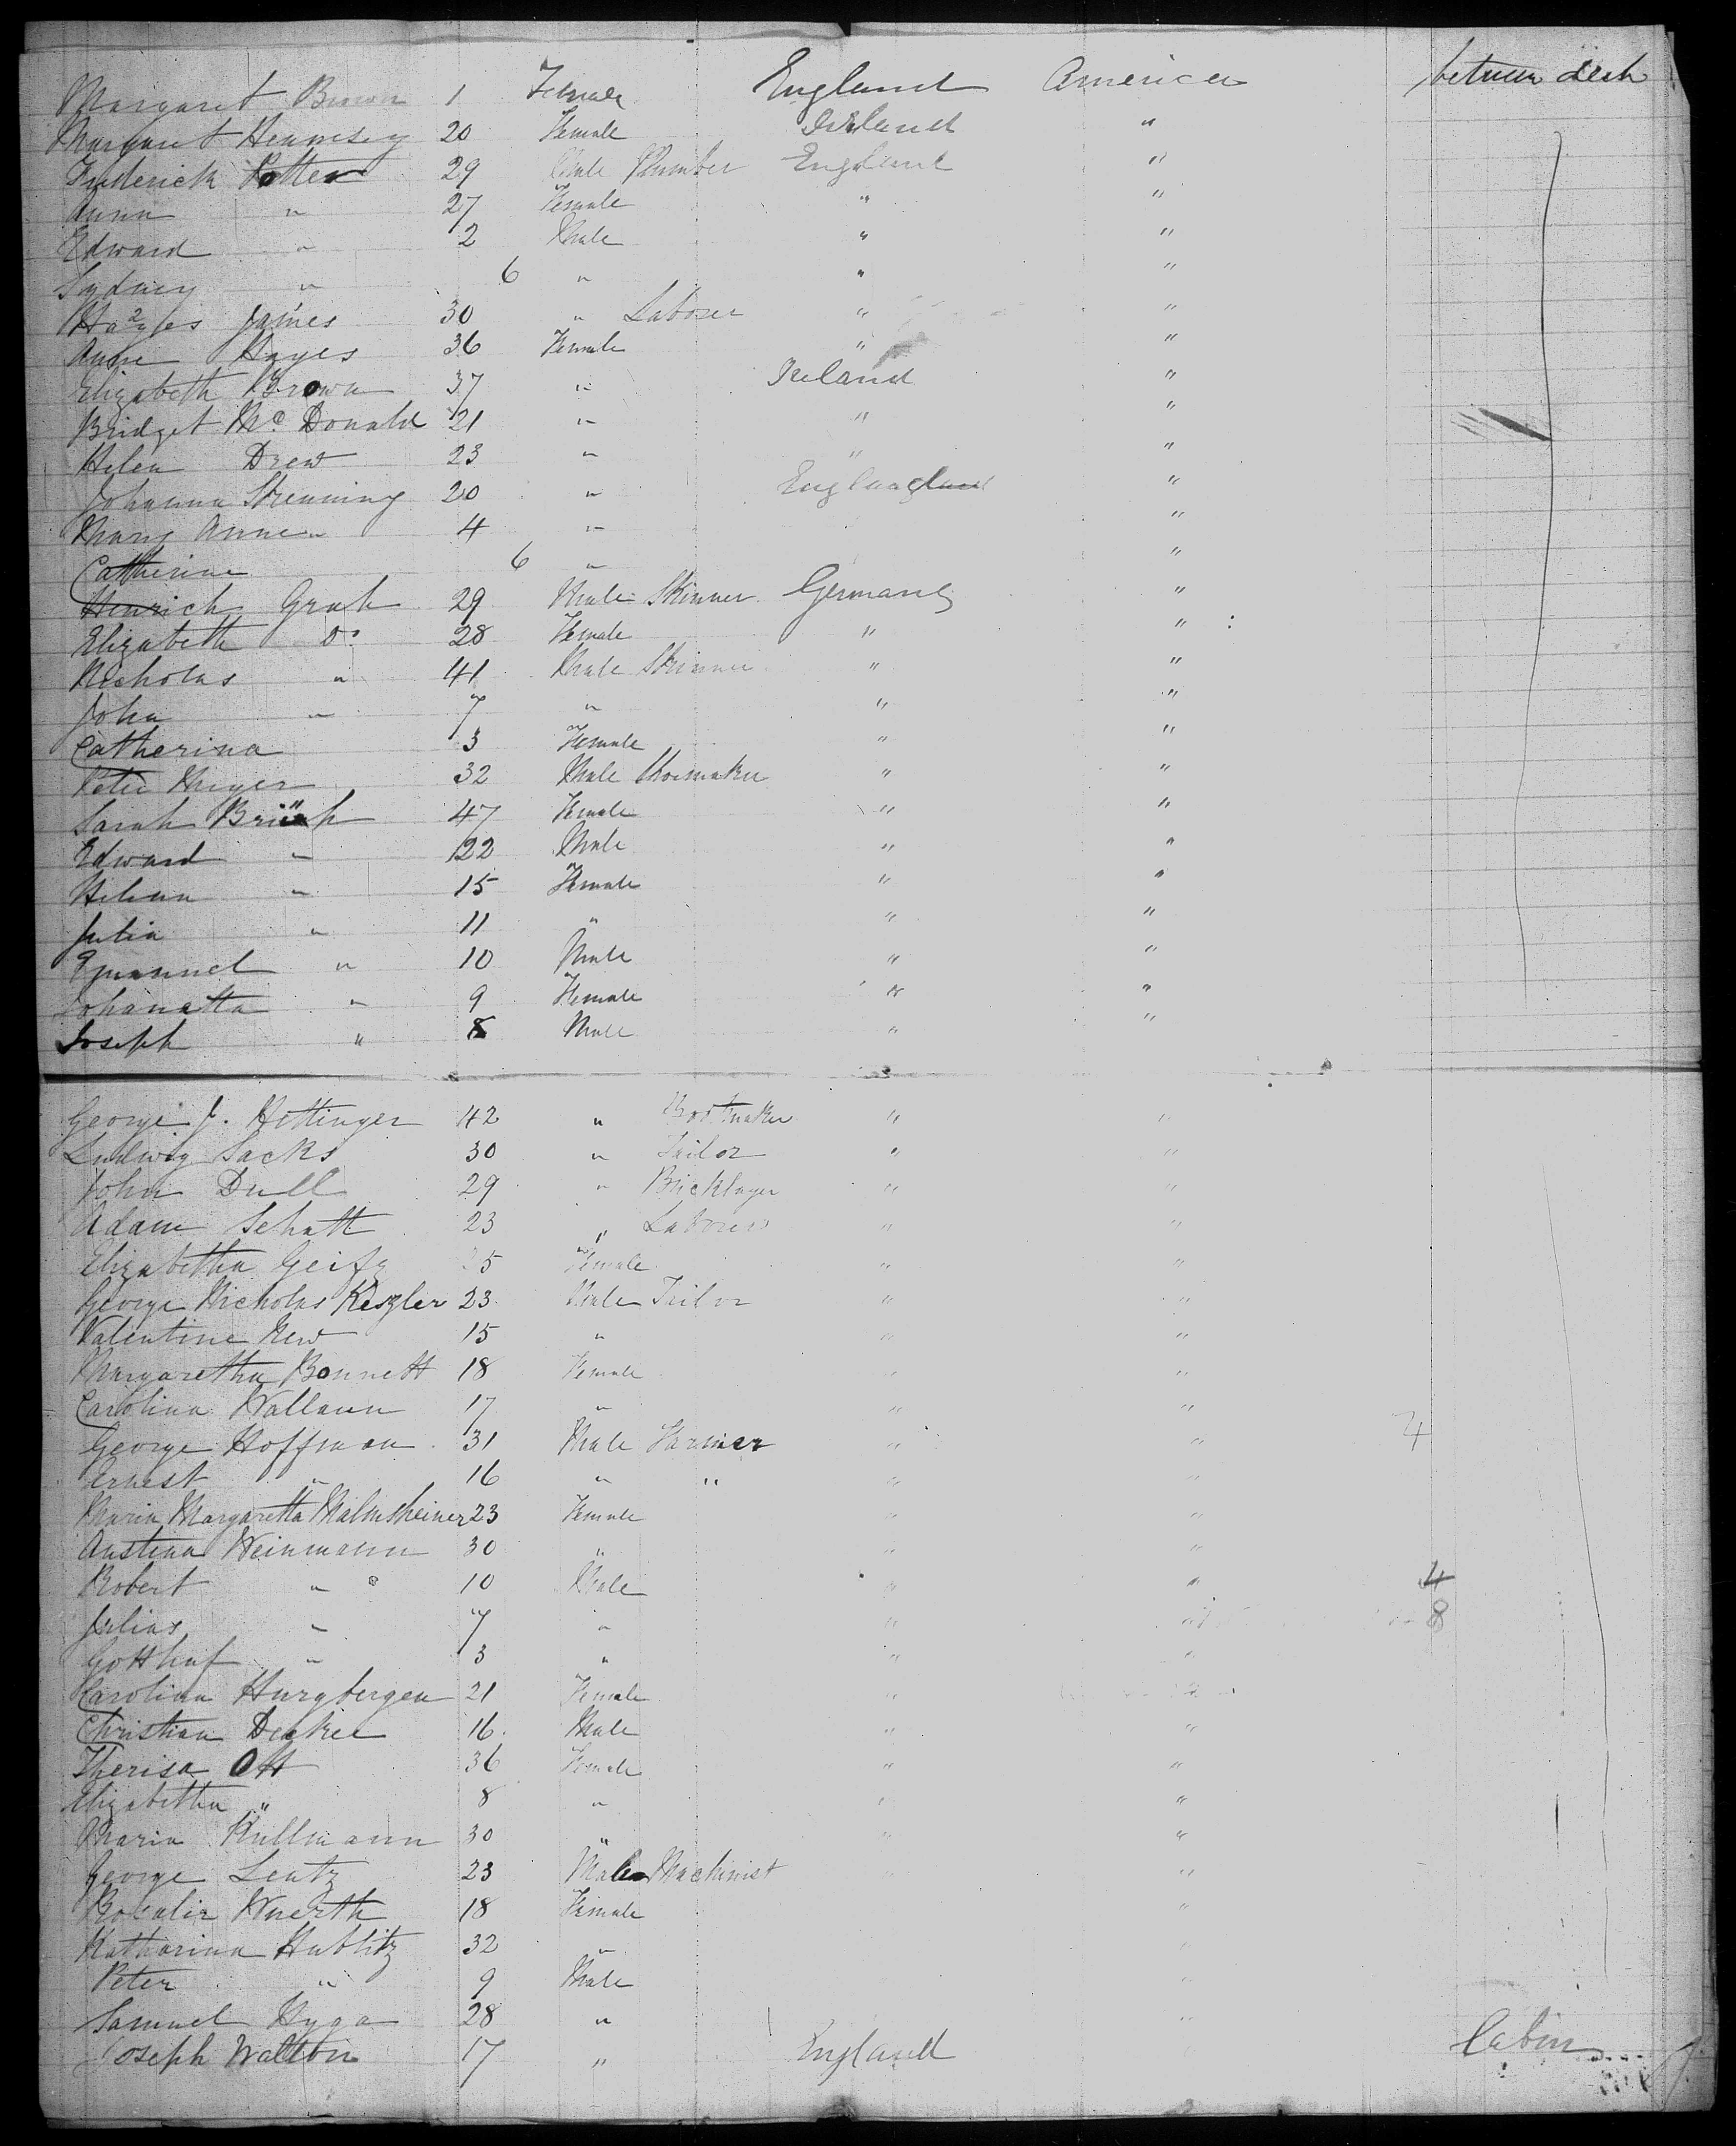 Margaret Brown 1 Female England America between deck
Margaret Hennesey 20 Female Ireland "
Frederick Potter 29 Male Plumber England "
Anna " 27 Female " "
Edward " 2 Male " "
Sydney " 6 " " "
Hayes 2 James 1 30 " Laborer " "
Anne Hayes 36 Female " "
Elizabeth Brown 37 " Ireland "
Bridget Mc Donald 21 " " "
Helen Drew 23 " " "
Johanna 20 " "
Mary Anne " 4 " "
Catherine 6 " "
Henrich Grah 29 Male Skinner Germany "
Elizabeth Do 28 Female " "
Nicholas " 41 Male Skinner " "
John " 7 " " "
Catherina 3 Female " "
Peter 32 Male Shoemaker " "
Sarah 47 Female " "
Edward " 22 Male " "
Helena " 15 Female " "
Julia " 11 " " "
Emanuel " 10 Male " "
Johanetta " 9 Female " "
Joseph " 8 Male " "
George J. Hettinger 42 " Bootmaker " "
Ludwig Sacks 30 " Tailor " "
John Dull 29 " Bricklayer " "
Adam Schatt 23 " Laborer " "
Elizabetha 5 Female " "
George Nicholas Keszler 23 Male Tailor " "
Valentine New 15 " " "
Margaretha Bonnett 18 Female " "
Carolina Wallaun 17 " " "
George Hoffman 31 Male Farmer " " 4
Ernest " 16 " " " "
Maria Margaretta Malmsheimer 23 Female " "
Austena Weinmann 30 " " "
Robert " 10 Male " " 4
Julias " 7 " " " 8
Gotthaf " 3 " " "
Carolina Hurgbergen 21 Female " 2
Christian Decker 16 Male " "
Therisa Ott 36 Female " "
Elizabetha " 8 " " "
Maria Kullmann 30 " " "
George Leutz 23 Male Machinist "
Rosalia Wuerth 18 Female "
Katharina Hublitz 32 "
Peter " 9 Male "
Samuel Hyga 28 " "
Joseph Walton 17 " England Cabin